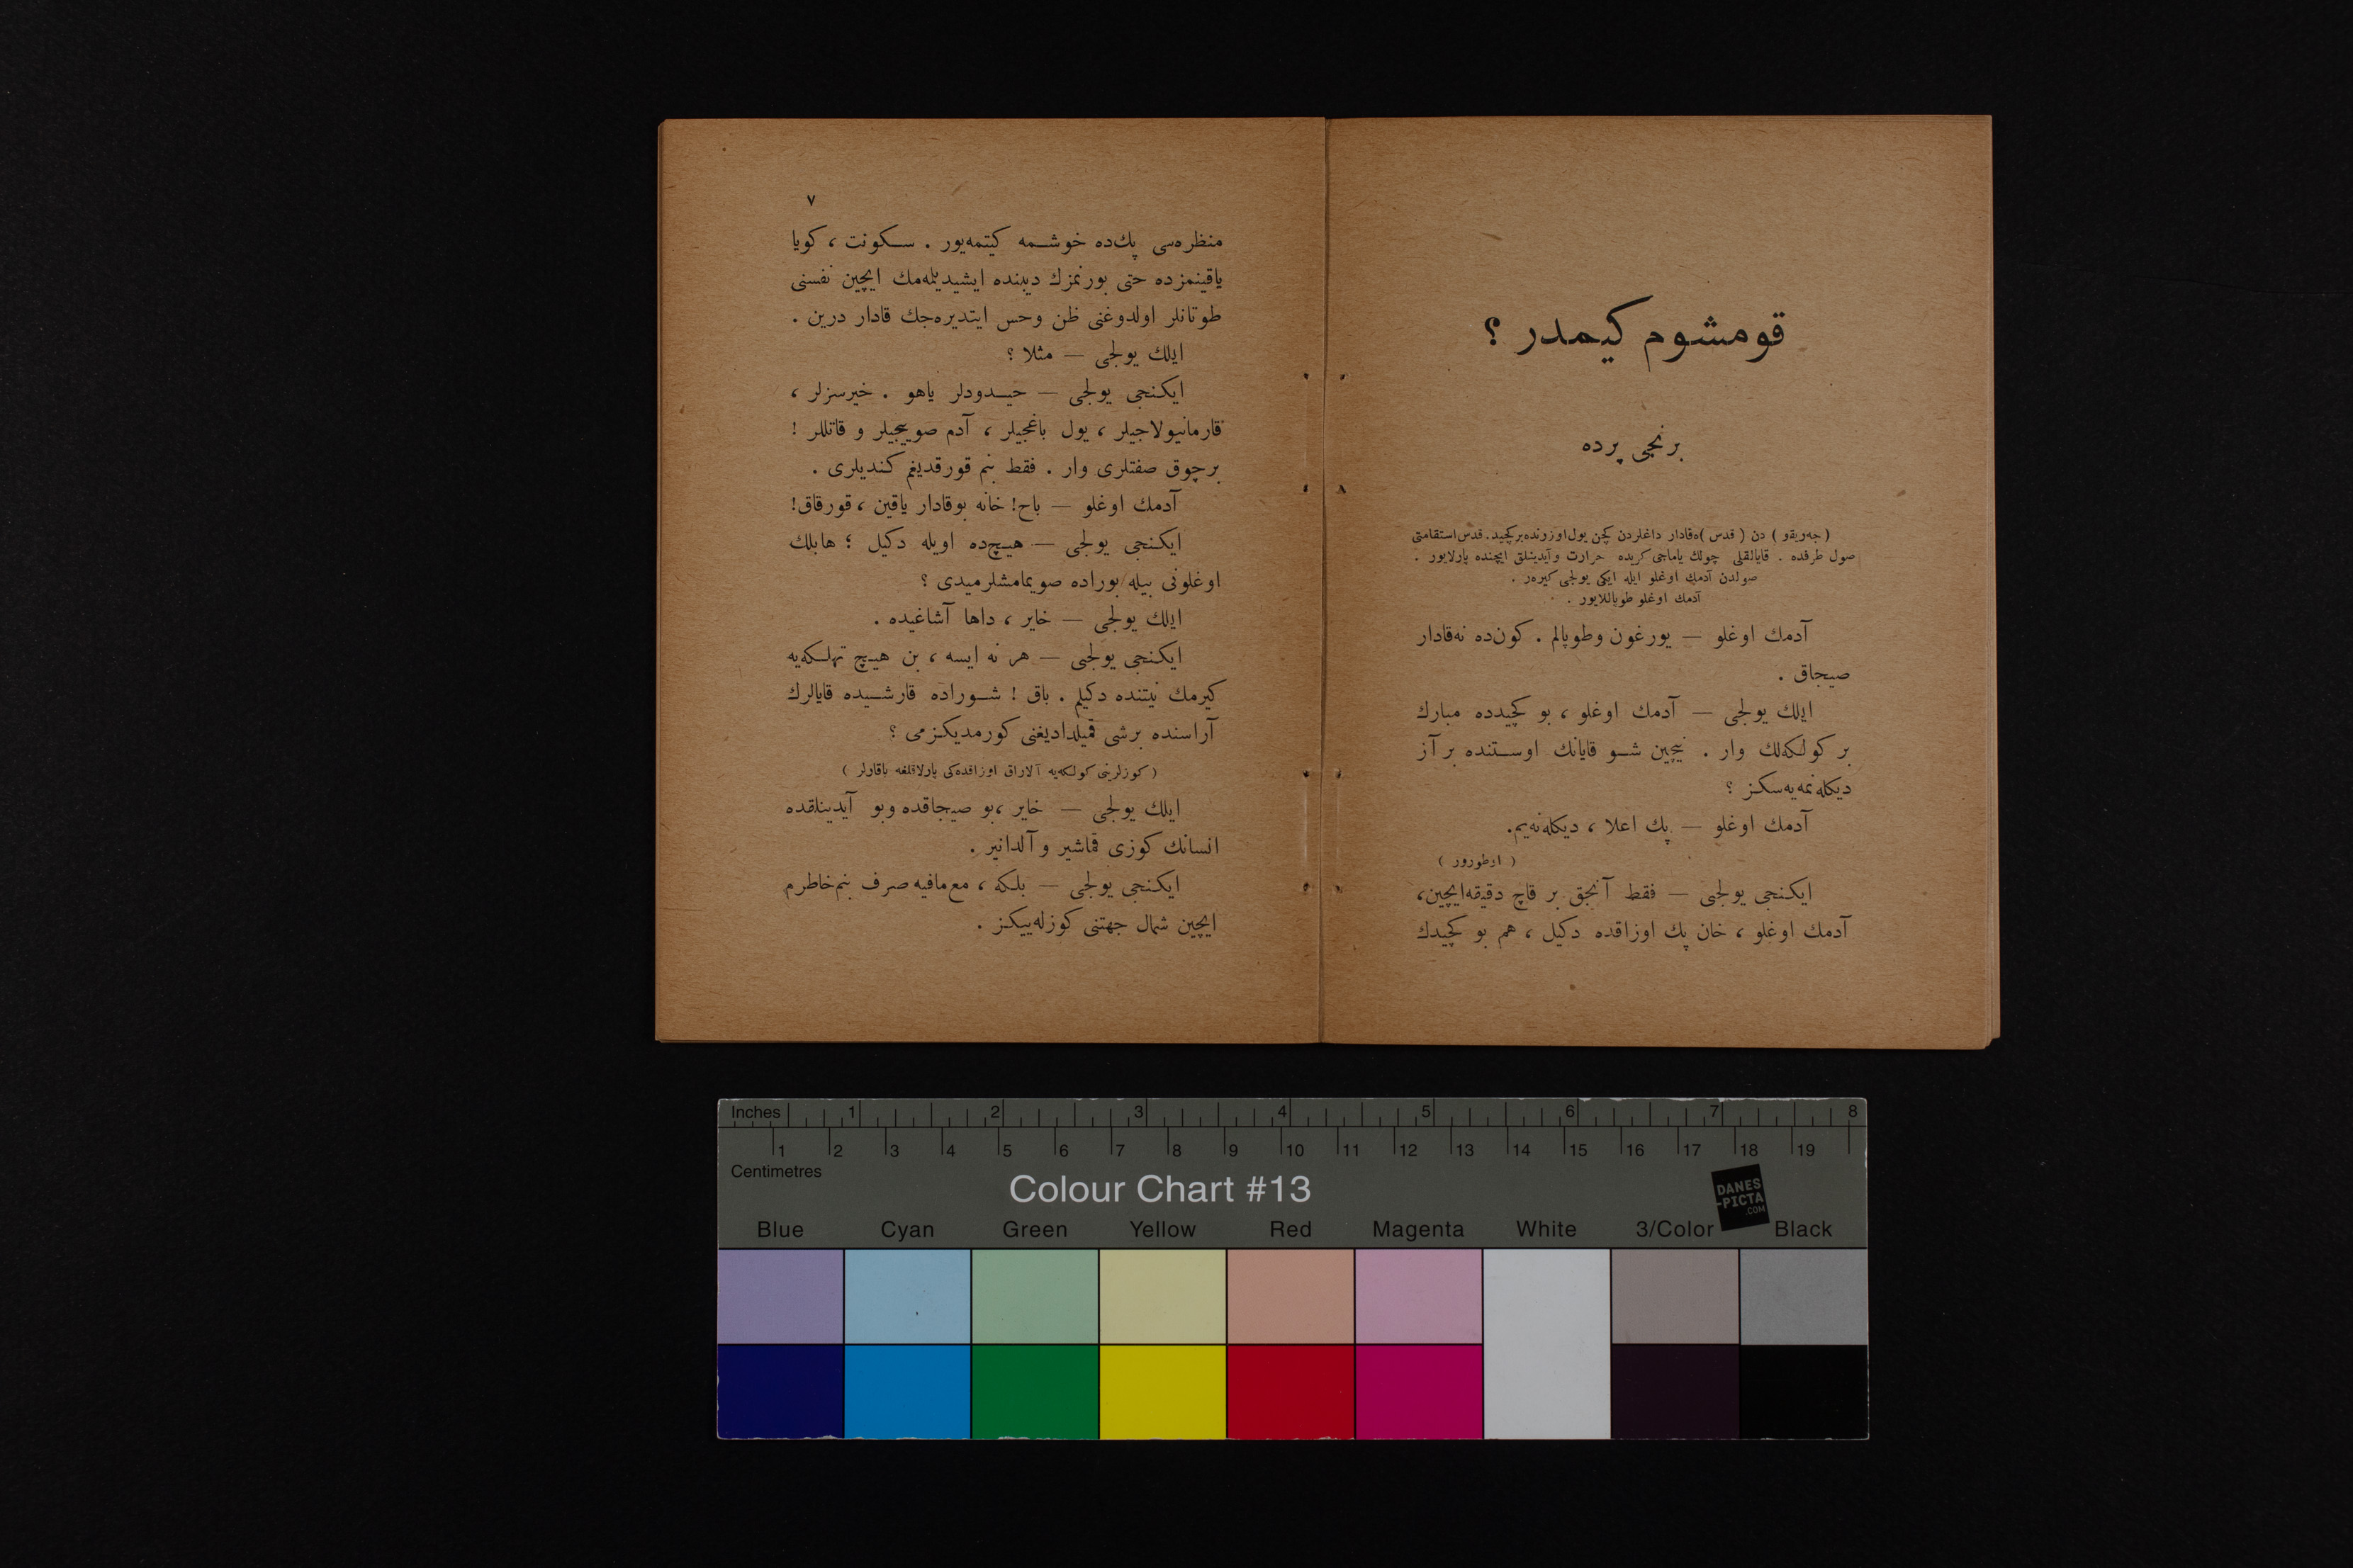 قومشوم كیمدر ؟
برنجی پرده
( جه‌ریقو ) دن ( قدس )ه‌قادار داغلردن كچن یول‌اوزرنده‌بركچید. قدس‌استقامتی
صول طرفده . قایالقلی چولك یاماجی كریده حرارت وآیدینلق ایچنده پارلایور .
صولدن آدمك اوغلو ایله ایكی یولجی كیره‌ر .
آدمك اوغلو طوپاللایور .
آدمك اوغلو — یورغون وطوپالم . كون‌ده نه‌قادار
صیجاق .
ایلك یولجی — آدمك اوغلو ، بو كچیدده مبارك
بر كولكه‌لك وار . نیچین شو قایانك اوستنده بر آز
دیكله‌نمه‌یه‌سكز ؟
آدمك اوغلو — پك اعلا ، دیكله‌نه‌یم.
( اوطورور )
ایكنجی یولجی — فقط آنجق بر قاچ دقیقه‌ایچین،
آدمك اوغلو ، خان پك اوزاقده دكیل ، هم بو كچیدك
٧
منظره‌سی پك‌ده خوشمه كیتمه‌یور . سكونت ، كویا
یاقینمزده حتی بورنمزك دیبنده ایشیدیلمه‌مك ایچین نفسنی
طوتانلر اولدوغنی ظن وحس ایتدیره‌جك قادار درین .
ایلك یولجی — مثلا ؟
ایكنجی یولجی — حیدودلر یاهو . خیرسزلر ،
قارمانیولاجیلر ، یول باغجیلر ، آدم صوییجیلر و قاتللر !
برچوق صفتلری وار . فقط بنم قورقدیغم كندیلری .
آدمك اوغلو — باح! خانه بوقادار یاقین ، قورقاق!
ایكنجی یولجی — هیچ‌ده اویله دكیل ؛ هابلك
اوغلونی بیله بوراده صویمامشلرمیدی ؟
ایلك یولجی — خایر ، داها آشاغیده .
ایكنجی یولجی — هر نه ایسه ، بن هیچ تهلكه‌یه
كیرمك نیتنده دكیلم . باق ! شوراده قارشیده قایالرك
آراسنده برشی قمیلدادیغنی كورمدیكزمی ؟
( كوزلرینی كولكه‌یه آلاراق اوزاقده‌كی پارلاقلغه باقارلر )
ایلك یولجی — خایر ،بو صیجاقده وبو آیدینلقده
انسانك كوزی قماشیر و آلدانیر .
ایكنجی یولجی — بلكه ، مع‌مافیه صرف بنم‌خاطرم
ایچین شمال جهتنی كوزله‌ییكز .
Inches 1 2 3 4 5 6 7 8
1 2 3 4 5 6 7 8 9 10 11 12 13 14 15 16 17 18 19
Centimetres
Colour Chart #13
DANES
-PICTA
.COM
Blue Cyan Green Yellow Red Magenta White 3/Color Black